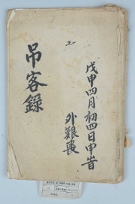 戊申四月初四日申昔
外艱喪
吊客錄